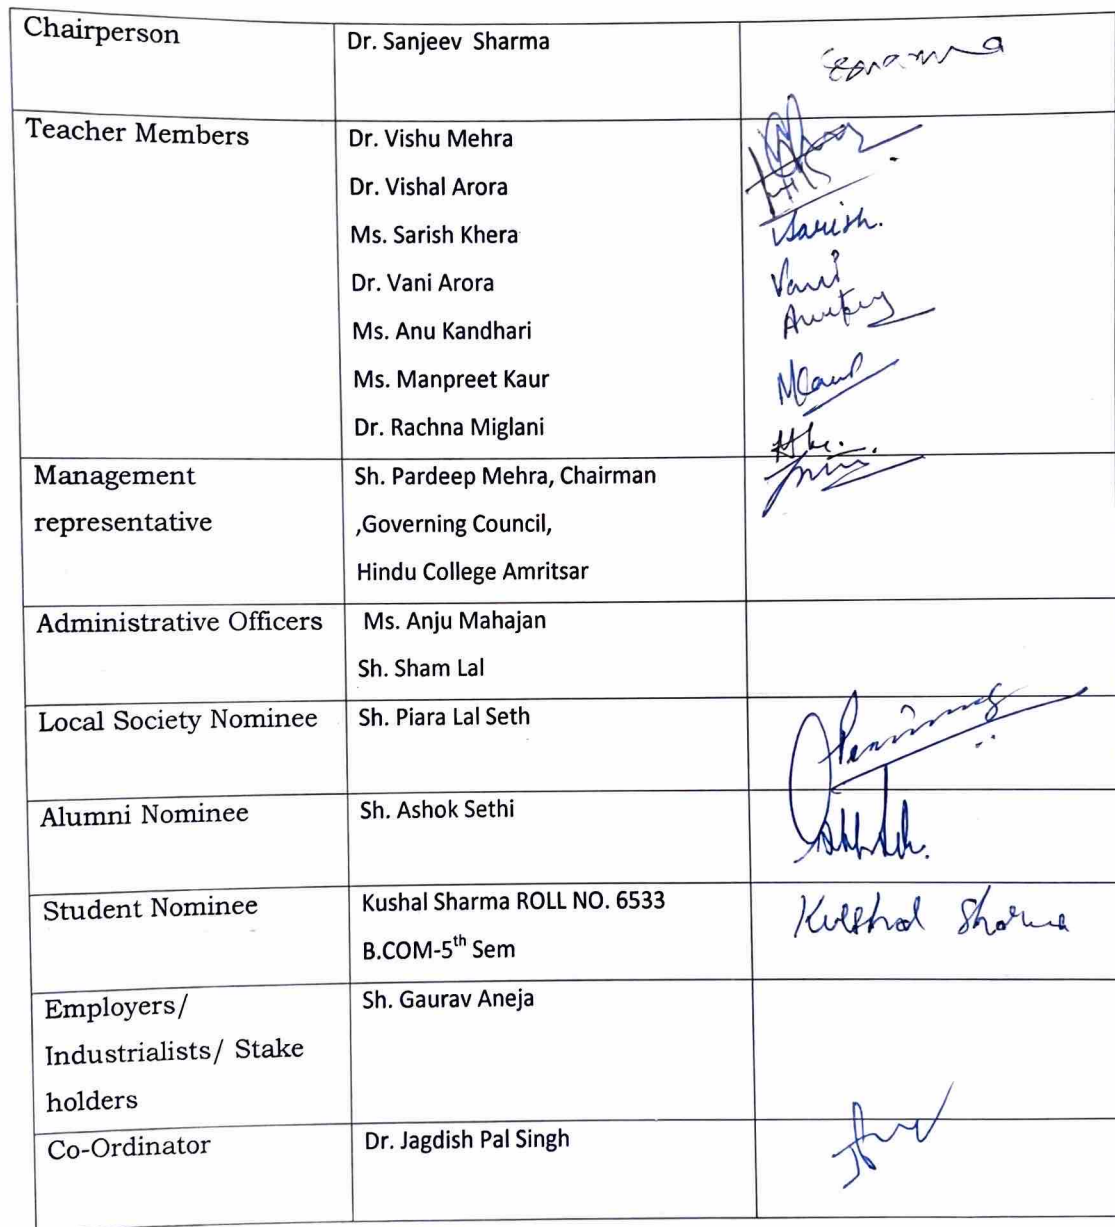 Chairperson
Dr. Sanjeev Sharma
Teacher Members
Dr. Vishu Mehra
Dr. Vishal Arora
Ms. Sarish Khera
Sarish.
Dr. Vani Arora
Vani
Ms. Anu Kandhari
Ms. Manpreet Kaur
Dr. Rachna Miglani
Management
representative
Sh. Pardeep Mehra, Chairman
,Governing Council,
Hindu College Amritsar
Administrative Officers
Ms. Anju Mahajan
Sh. Sham Lal
Local Society Nominee
Sh. Piara Lal Seth
Alumni Nominee
Sh. Ashok Sethi
Student Nominee
Kushal Sharma ROLL NO. 6533
B.COM-5th Sem
Kushal Sharma
Employers/
Industrialists/ Stake
holders
Sh. Gaurav Aneja
Co-Ordinator
Dr. Jagdish Pal Singh